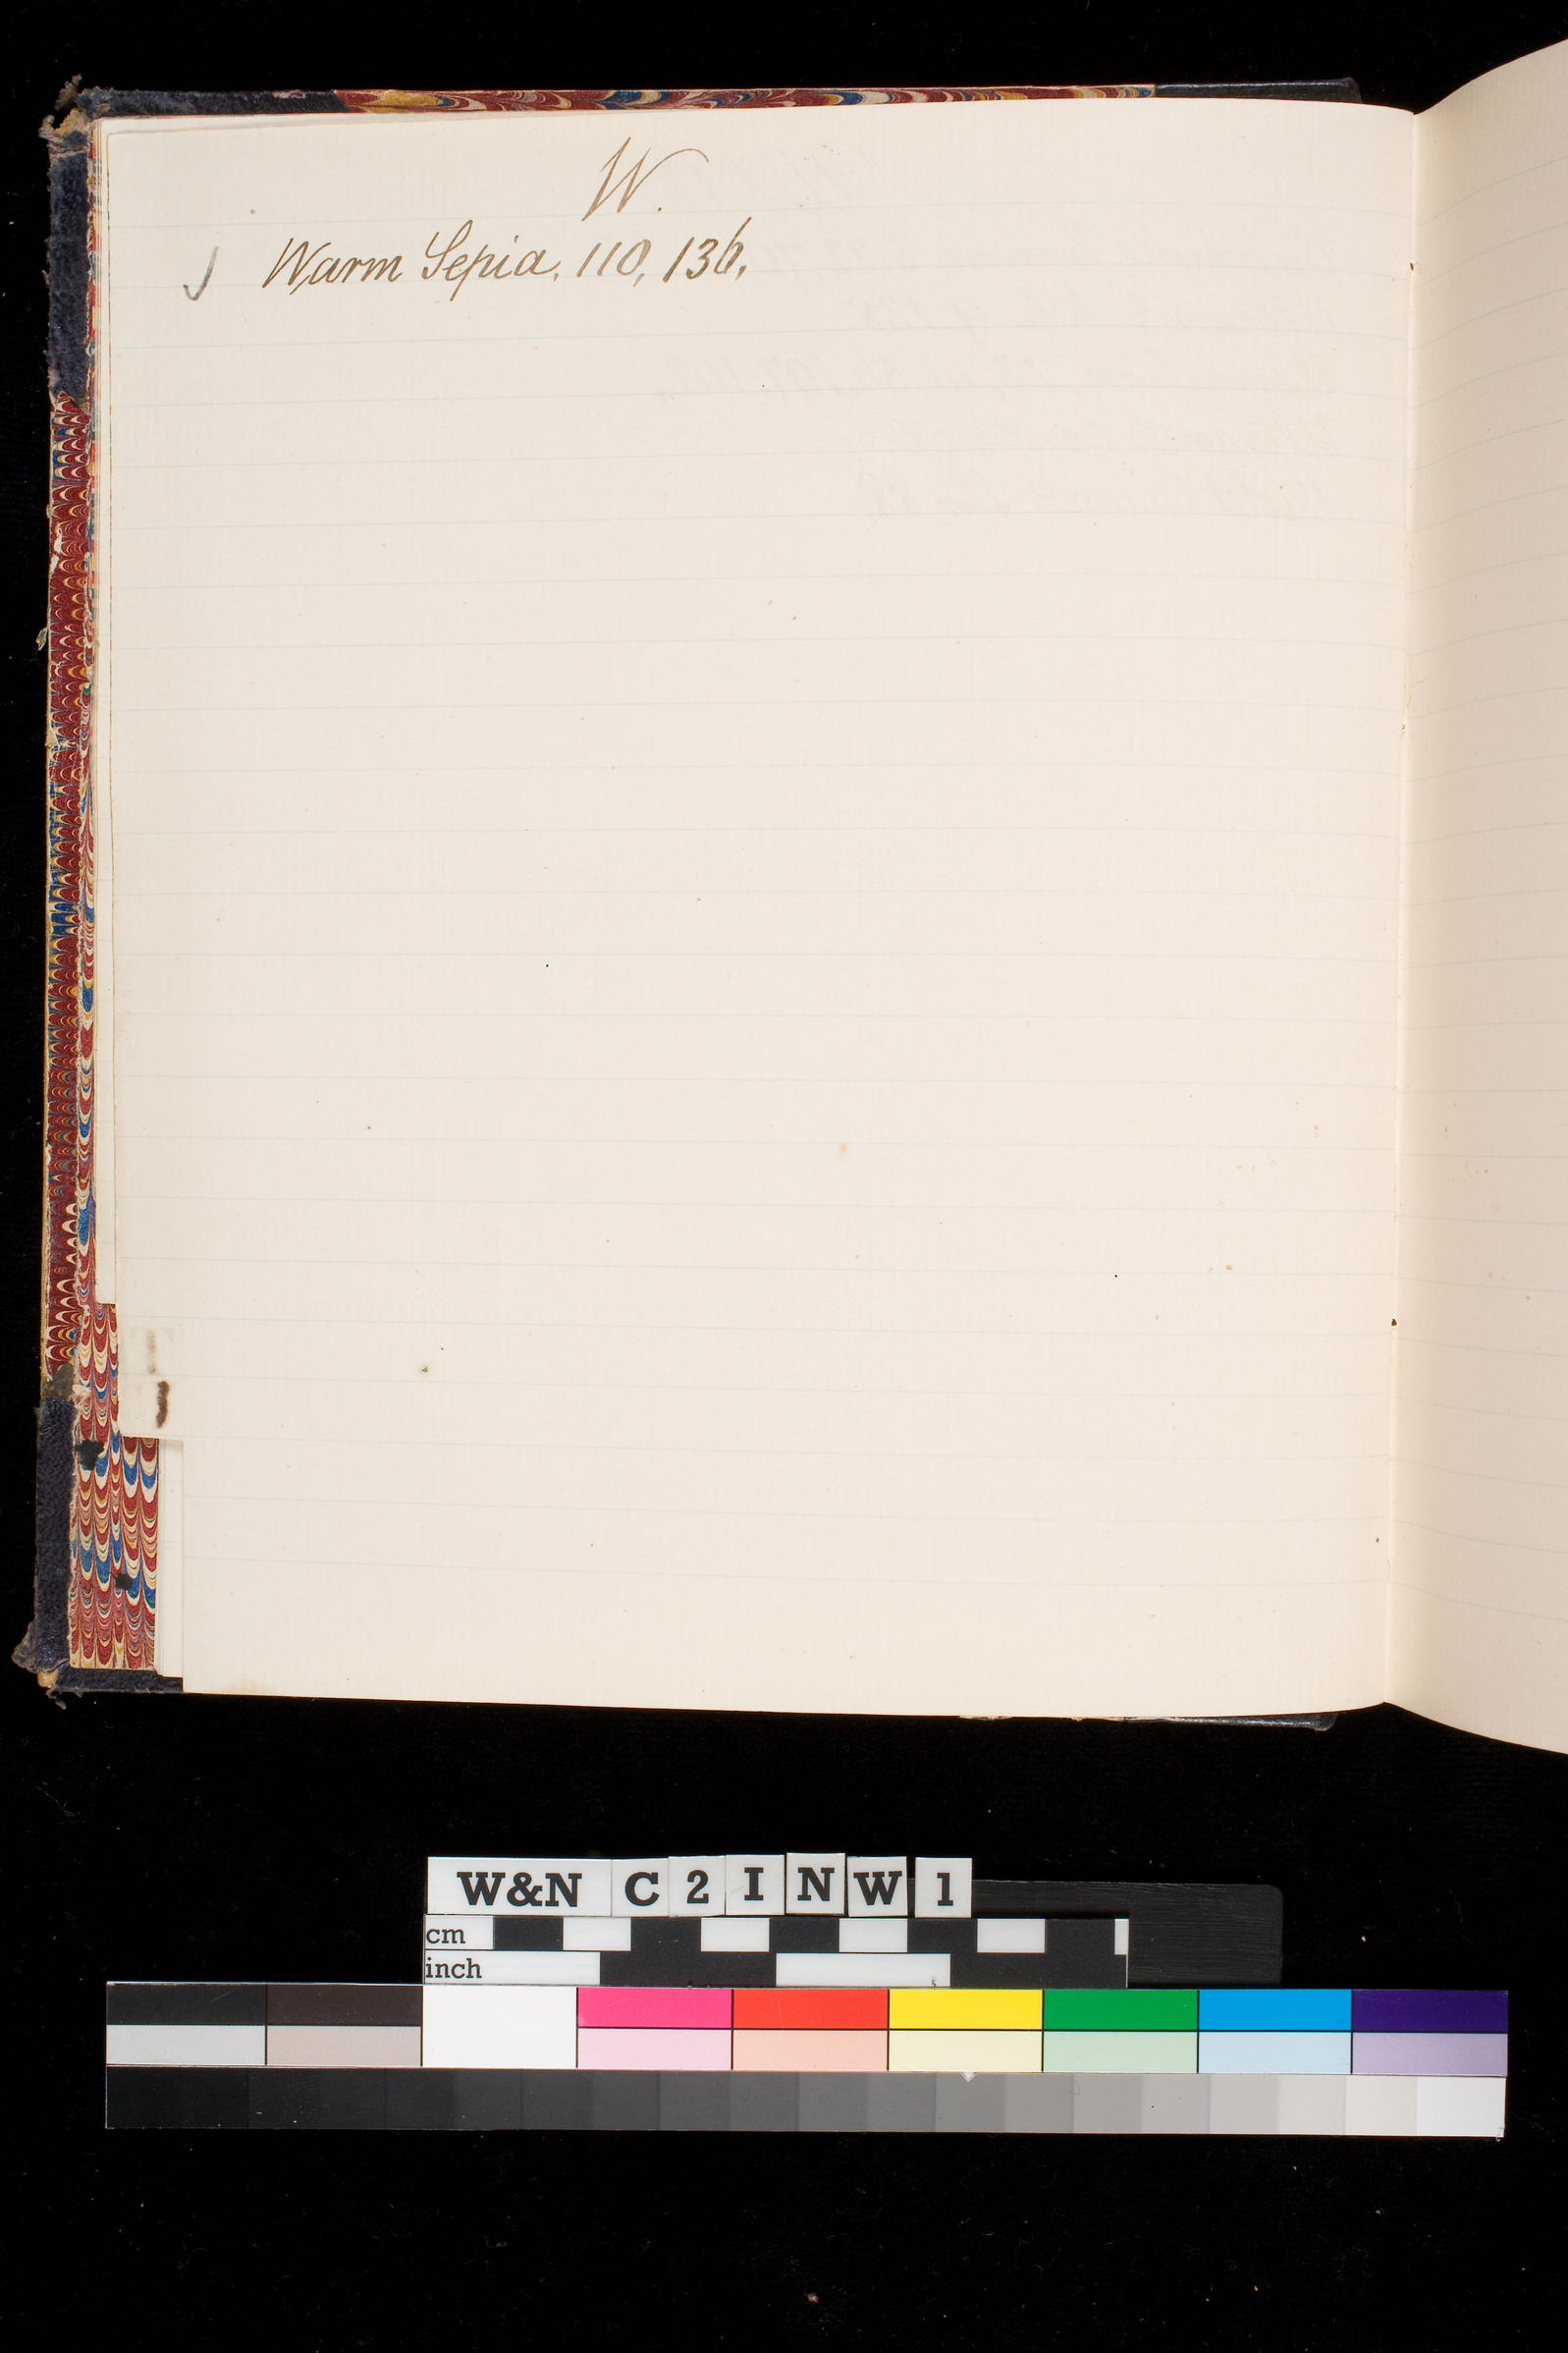 W.
Warm Sepia, 110, 136,
W&N C 2 I N W 1
cm
inch